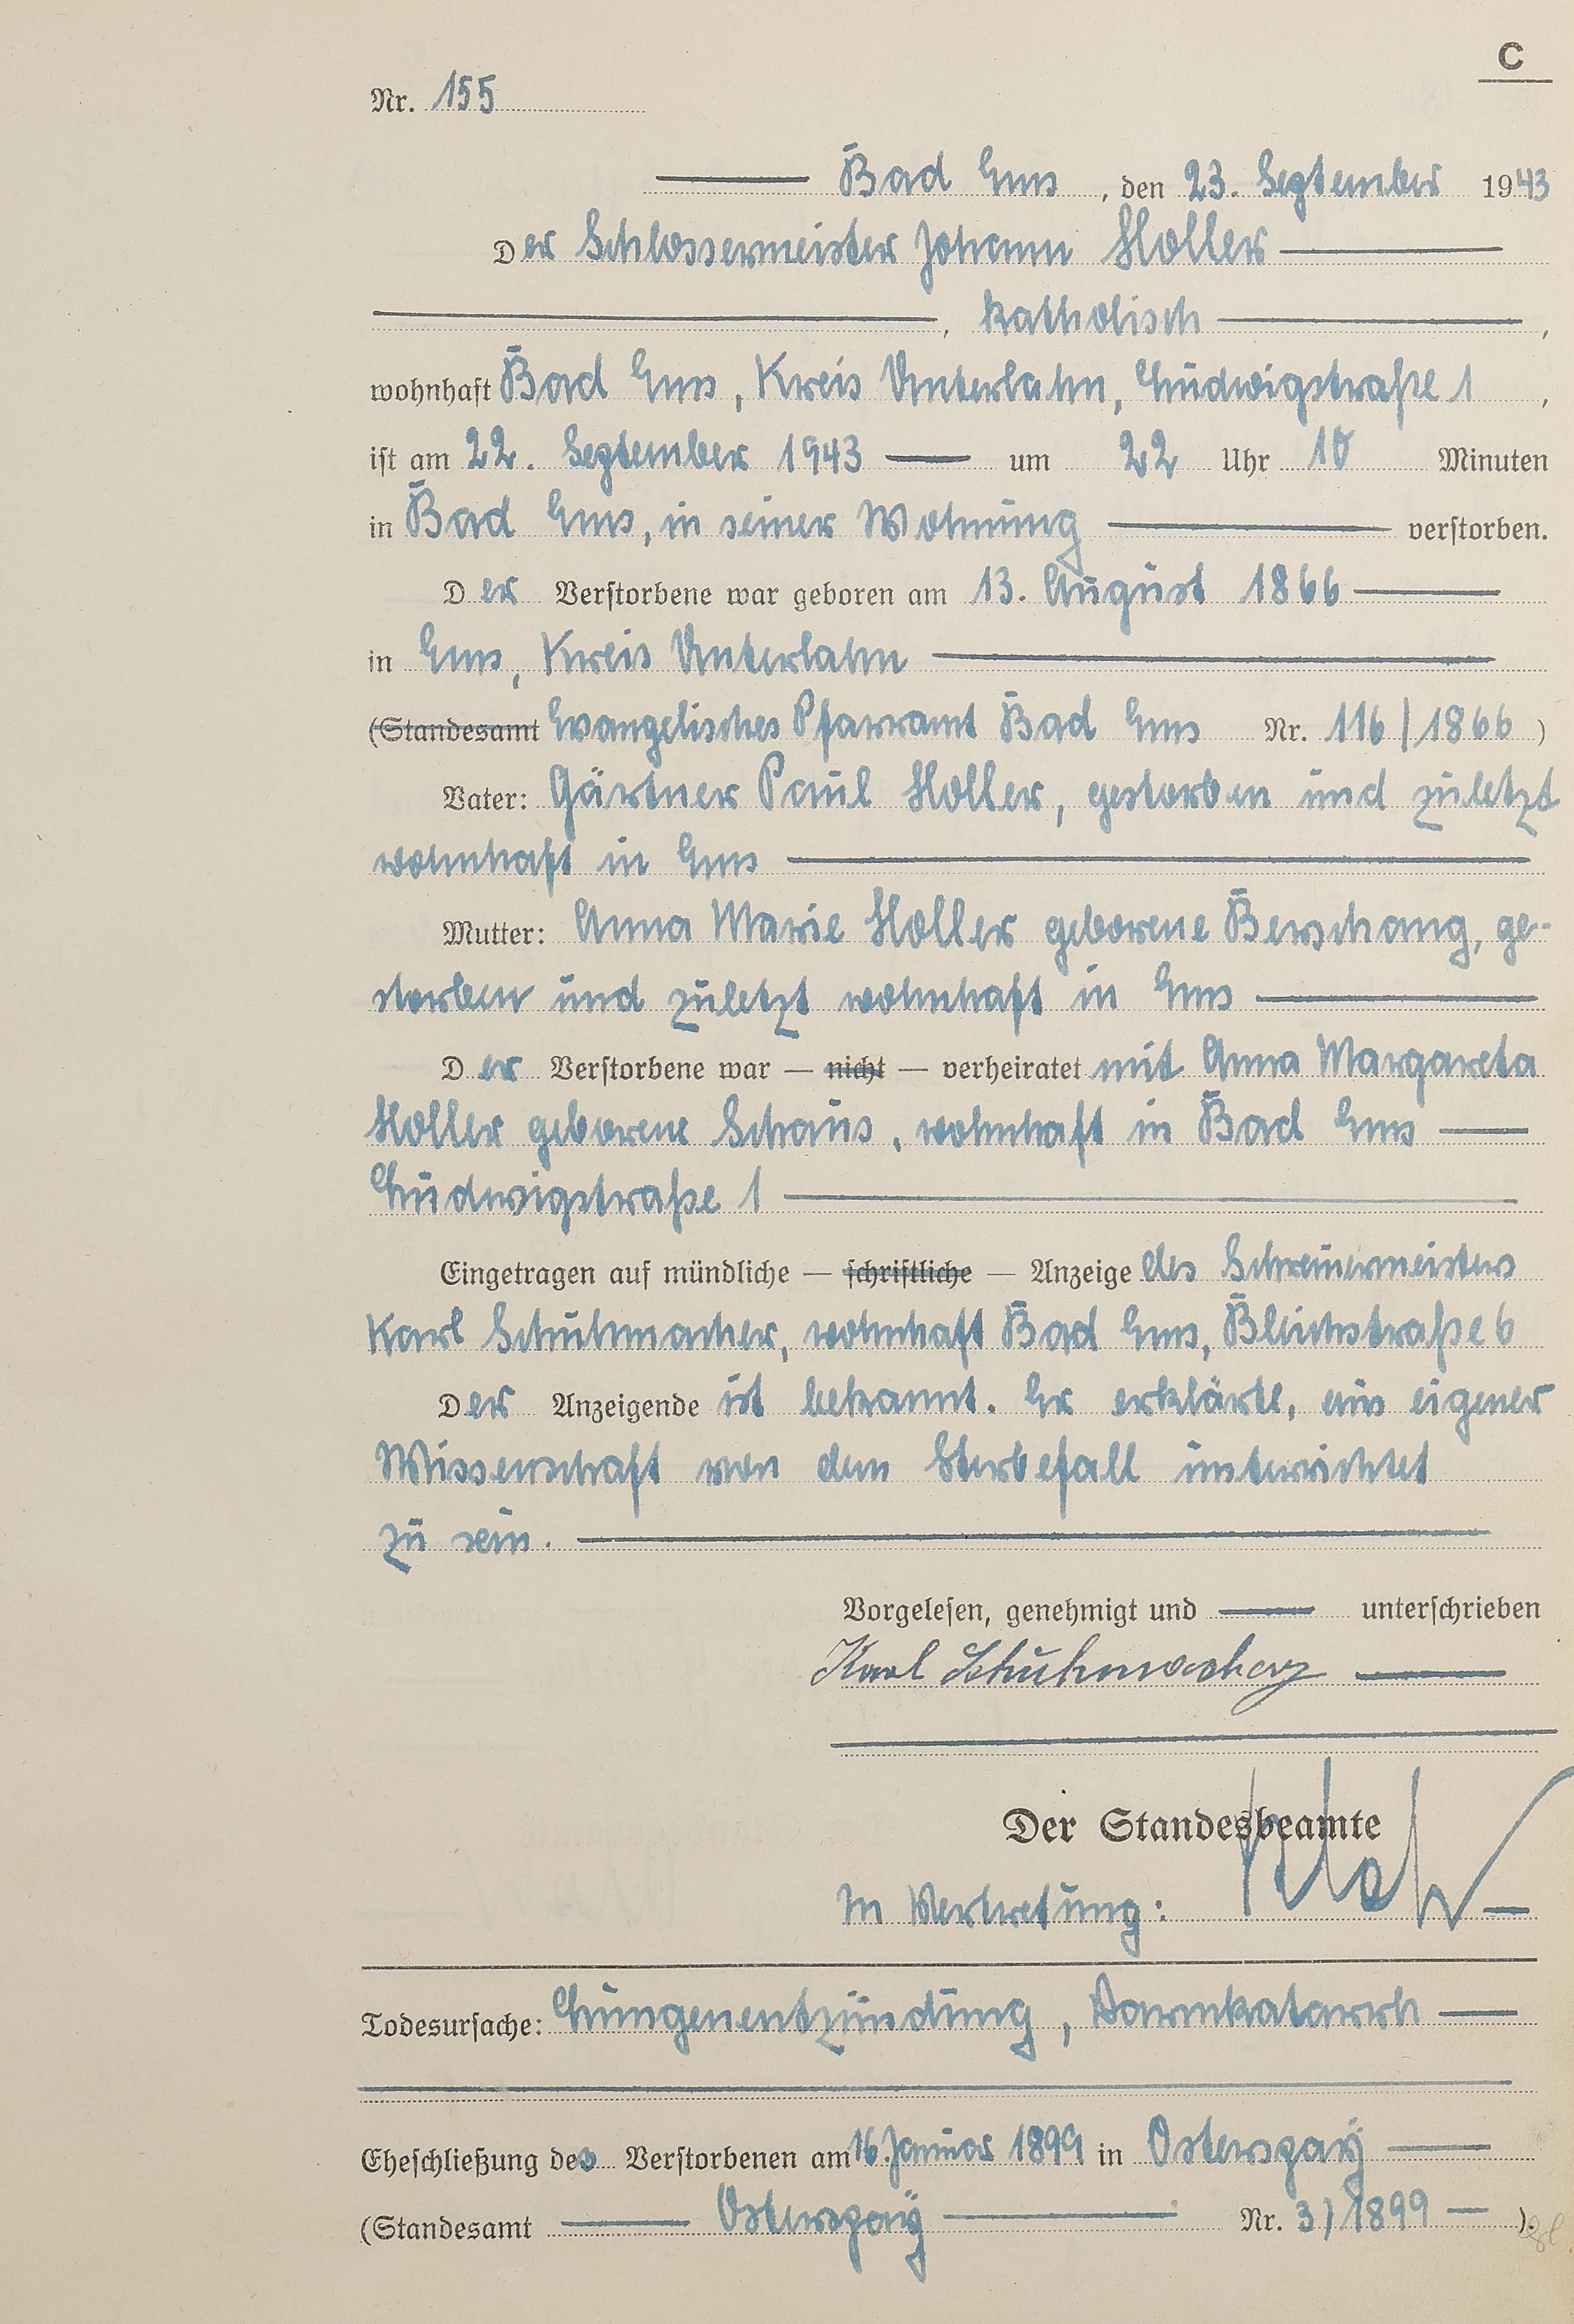 C
Nr. 155
Bad Ems, den 23. September 1943
Der Schlossermeister Johann Holler
, katholisch,
wohnhaft Bad Ems, Kreis Unterlahn, Ludwigstraße 1,
ist am 22. September 1943 um 22 Uhr 10 Minuten
in Bad Ems, in seiner Wohnung verstorben.
Der Verstorbene war geboren am 13. August 1866
in Ems, Kreis Unterlahn
(Standesamt Evangelisches Pfarramt Bad Ems Nr. 116/1866)
Vater: Gärtner Paul Holler, gestorben und zuletzt
wohnhaft in Ems
Mutter: Anna Marie Holler geborene Berschang, ge-
storben und zuletzt wohnhaft in Ems
Der Verstorbene war — nicht — verheiratet mit Anna Margareta
Holler geborene Schaus, wohnhaft in Bad Ems
Ludwigstraße 1
Eingetragen auf mündliche — schriftliche — Anzeige des Schreinermeisters
Karl Schuhmacher, wohnhaft Bad Ems, Bleichstraße 6
Der Anzeigende ist bekannt. Er erklärte, aus eigener
Wissenschaft von dem Sterbefall unterrichtet
zu sein.
Vorgelesen, genehmigt und unterschrieben
Karl Schuhmacher
Der Standesbeamte
In Vertretung:
Todesursache: Lungenentzündung, Darmkatarrh
Eheschließung des Verstorbenen am 16. Januar 1899 in Osterspaÿ
(Standesamt Osterspaÿ Nr. 3/1899).